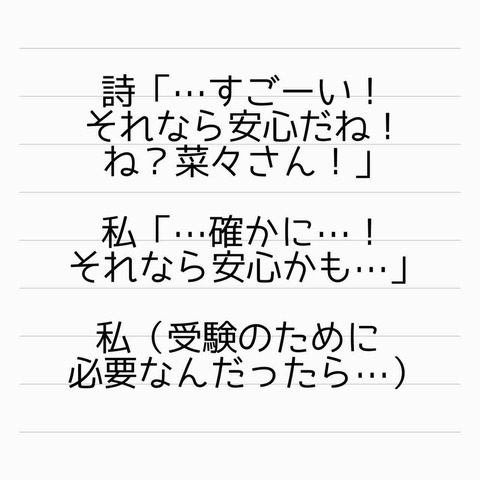 詩「…すごーい！
それなら安心だね！
ね？菜々さん！」
私「…確かに…！
それなら安心かも…」
私（受験のために
必要なんだったら…）